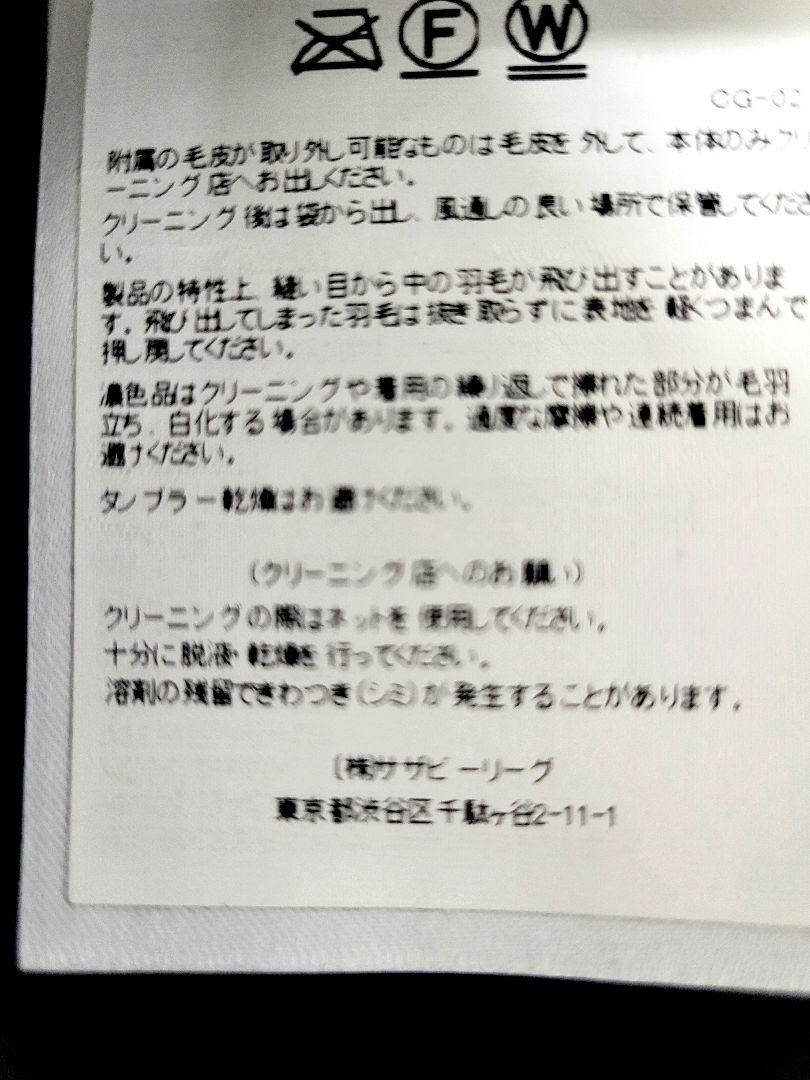 F W
CG-02
附属の毛皮が取り外し可能なものは毛皮を外して、本体のみクリ
ーニング店へお出しください。
クリーニング後は袋から出し、風通しの良い場所で保管してくださ
い。
製品の特性上、縫い目から中の羽毛が飛び出すことがありま
す。飛び出してしまった羽毛は抜き取らずに表地を軽くつまんで
押し戻してください。
濃色品はクリーニングや着用の繰り返しで擦れた部分が毛羽
立ち、白化する場合があります。過度な摩擦や連続着用はお
避けください。
タンブラー乾燥はお避けください。
(クリーニング店へのお願い)
クリーニングの際はネットを使用してください。
十分に脱液・乾燥を行ってください。
溶剤の残留できわつき(シミ)が発生することがあります。
(株)サザビーリーグ
東京都渋谷区千駄ヶ谷2-11-1